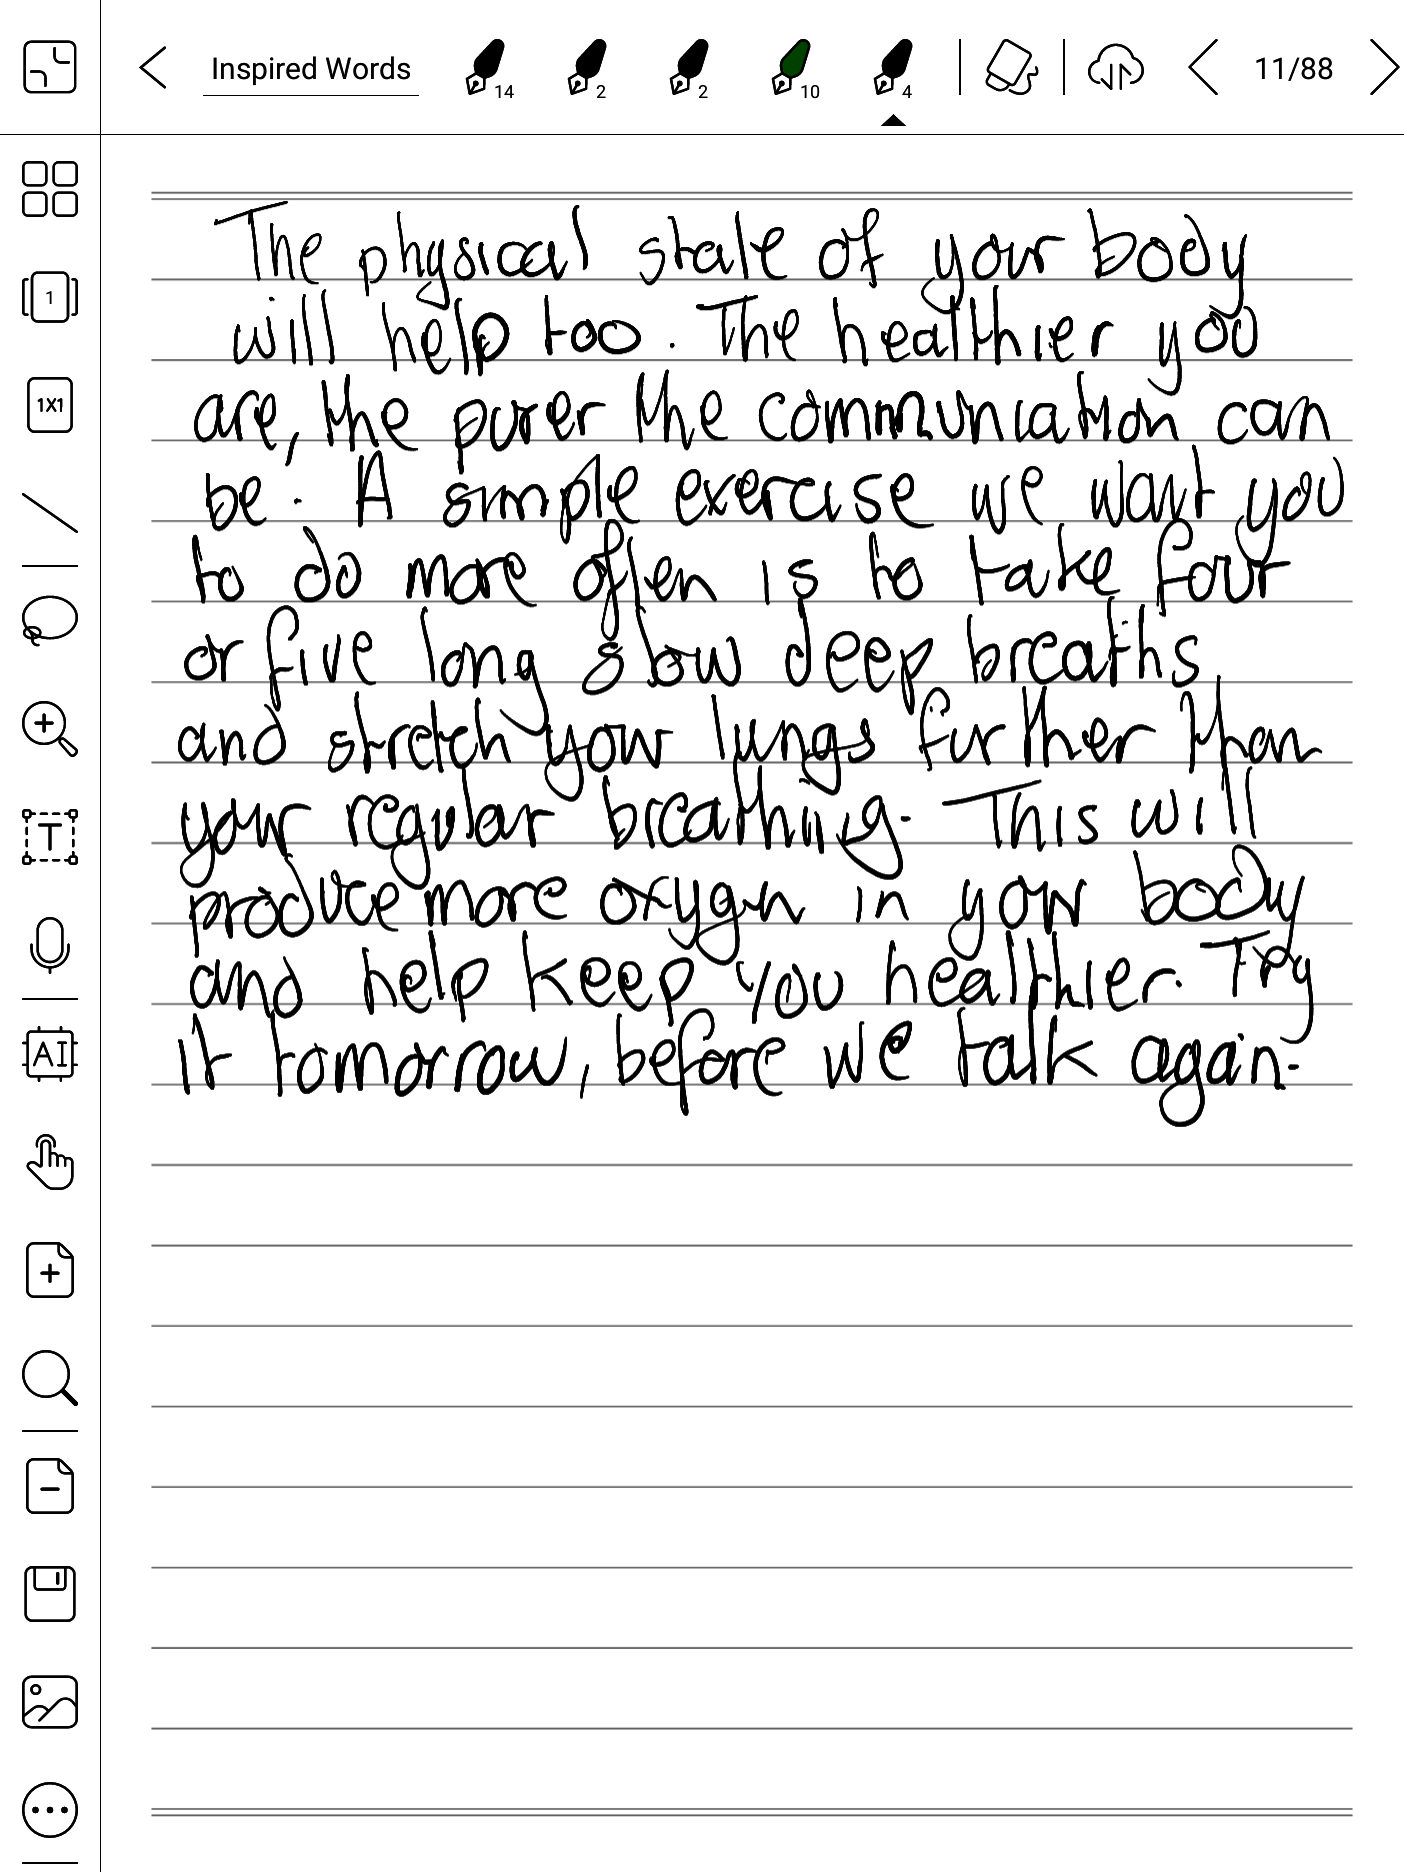 Inspired Words
14
2
2
10
4
11/88
1
1X1
T
AI
The physical state of your body
will help too. The healthier you
are, the purer the communiation can
be. A simple exercise we want you
to do more often is to take four
or five long slow deep breaths
and stretch your lungs further than
your regular breathing. This will
produce more oxygen in your body
and help keep you healthier. Try
it tomorrow, before we talk again.